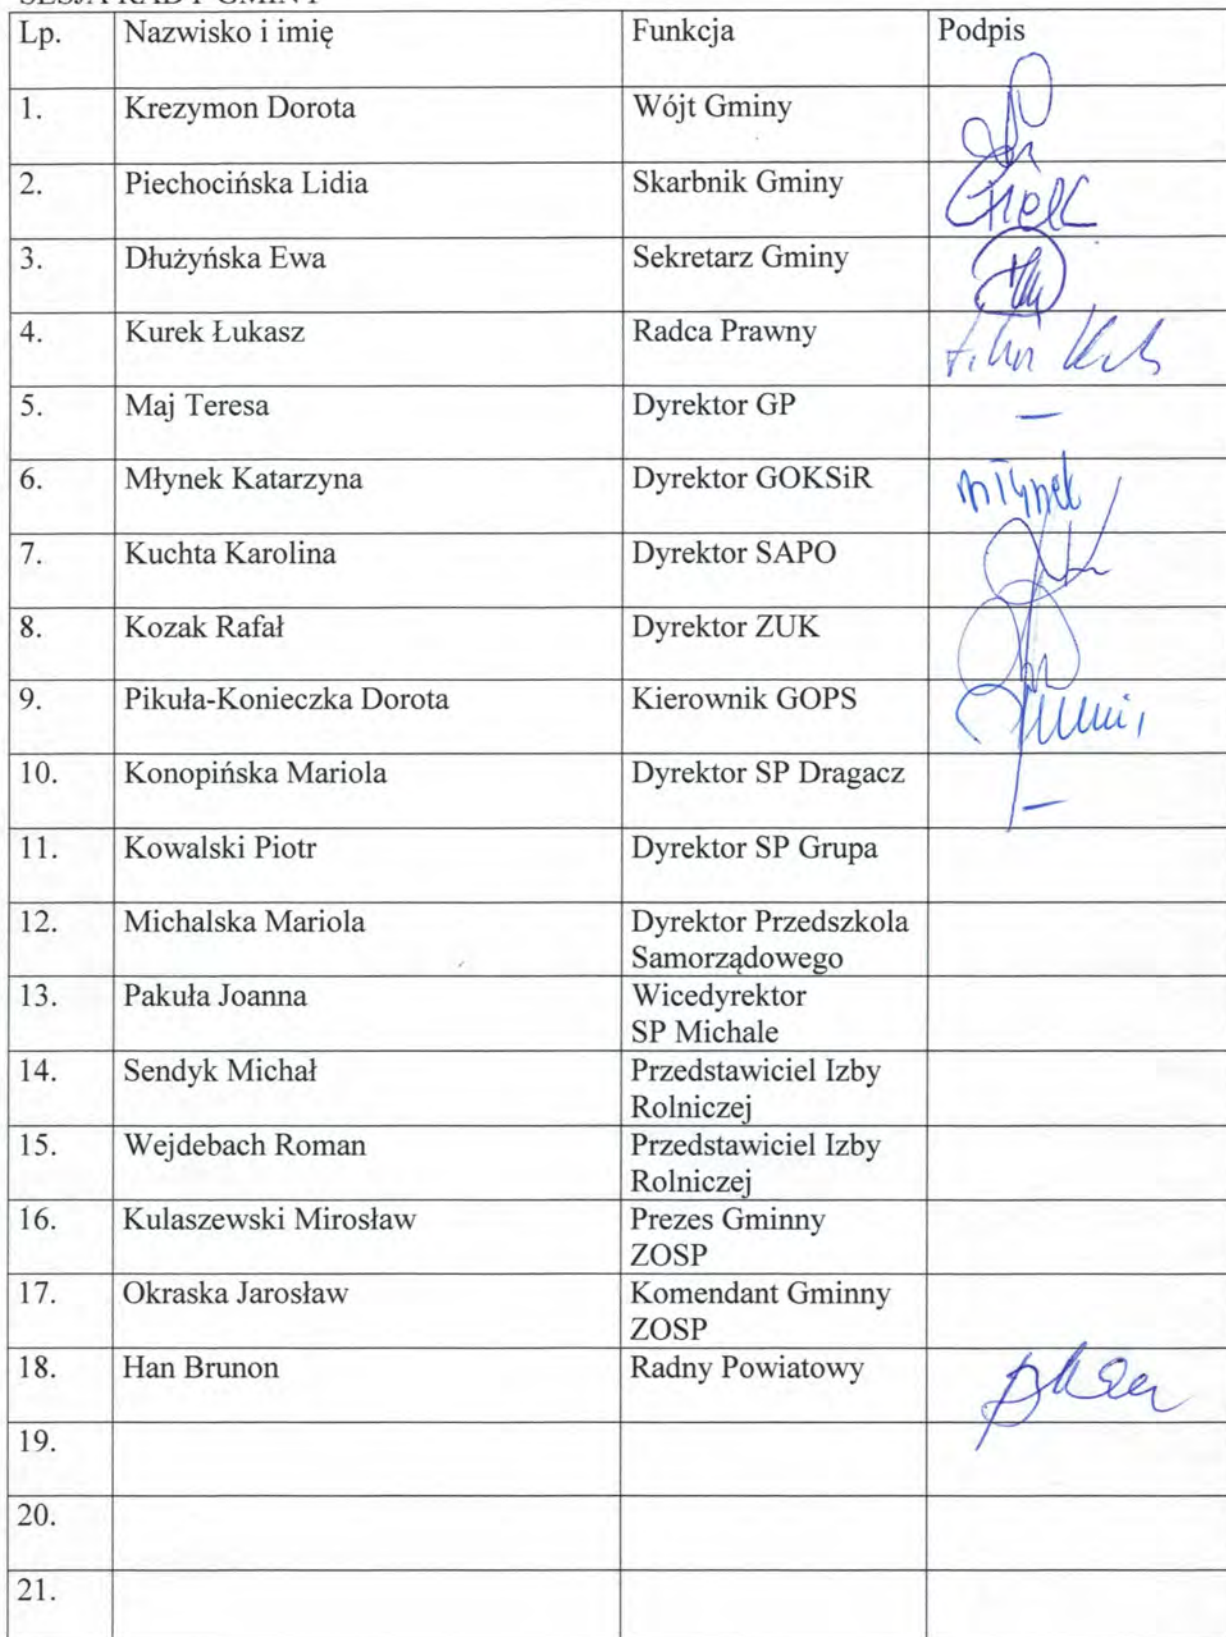 SESJA RADY GMINY
Lp. Nazwisko i imię Funkcja Podpis
1. Krezymon Dorota Wójt Gminy
2. Piechocińska Lidia Skarbnik Gminy
3. Dłużyńska Ewa Sekretarz Gminy
4. Kurek Łukasz Radca Prawny
5. Maj Teresa Dyrektor GP —
6. Młynek Katarzyna Dyrektor GOKSiR Młynek
7. Kuchta Karolina Dyrektor SAPO
8. Kozak Rafał Dyrektor ZUK
9. Pikuła-Konieczka Dorota Kierownik GOPS
10. Konopińska Mariola Dyrektor SP Dragacz —
11. Kowalski Piotr Dyrektor SP Grupa
12. Michalska Mariola Dyrektor Przedszkola
Samorządowego
13. Pakuła Joanna Wicedyrektor
SP Michale
14. Sendyk Michał Przedstawiciel Izby
Rolniczej
15. Wejdebach Roman Przedstawiciel Izby
Rolniczej
16. Kulaszewski Mirosław Prezes Gminny
ZOSP
17. Okraska Jarosław Komendant Gminny
ZOSP
18. Han Brunon Radny Powiatowy
19.
20.
21.